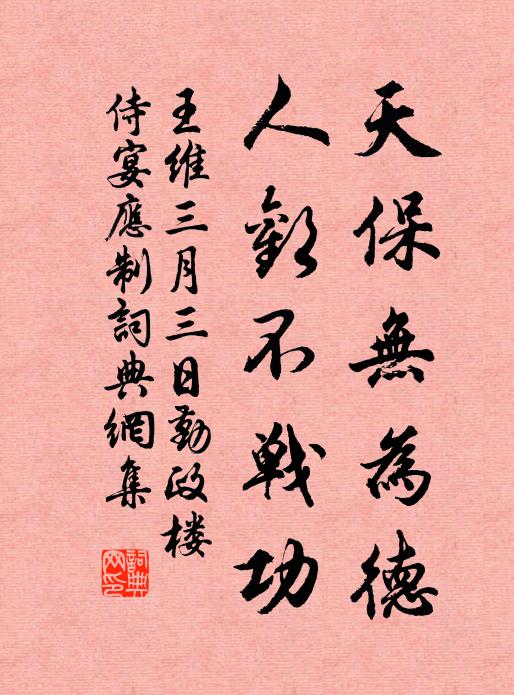 天保無為德
人歡不戰功
王維三月三日勤政楼
侍宴應制詞典網集
詞典网印